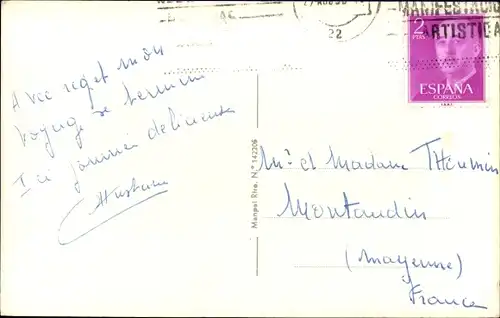 MANIFESTACIO
ARTISTICA
22
2
PTAS
ESPAÑA
CORREOS
Avec regret mon
voyage se termine
Ici journée délicieuse
Manpel Rto. N.º 142206
Mr et Madame Thoumin
Montaudin
(Mayenne)
France